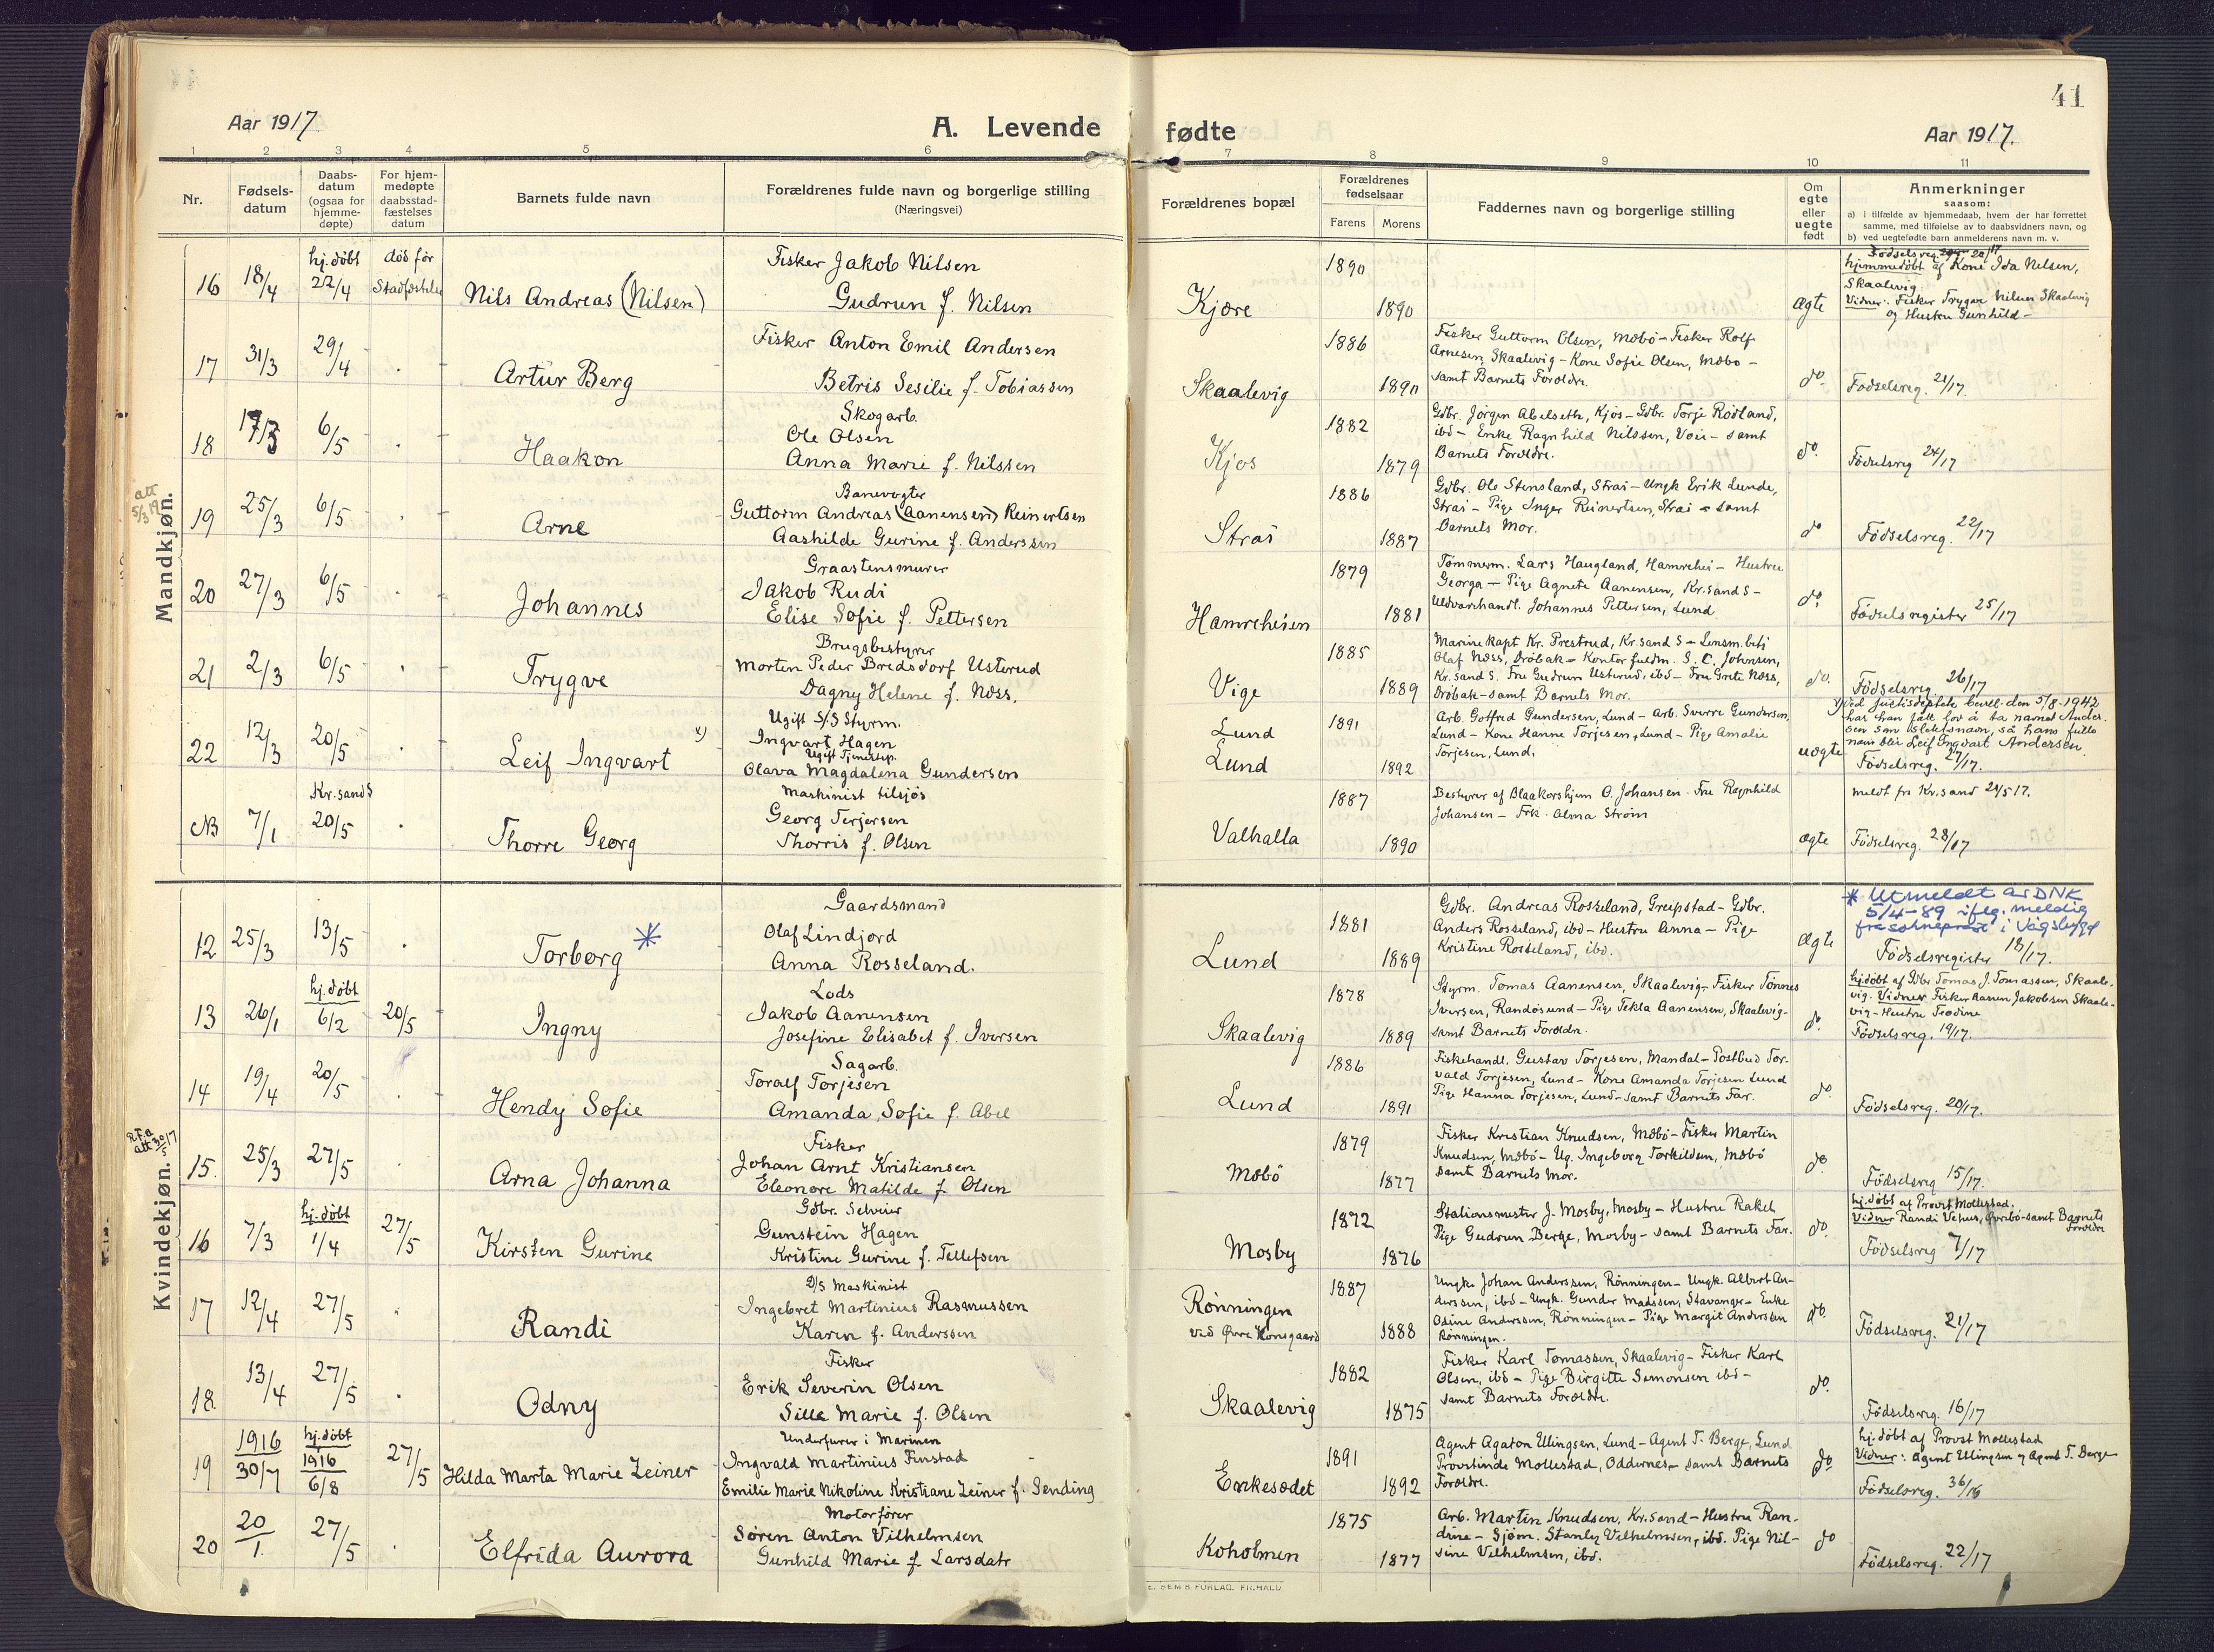 41
Aar 1917.
A. Levende
fødte
Aar 1917.
1 2 3 4 5 6 7 8 9 10 11
Nr.
Fødsels-
datum
Daabs-
datum
(ogsaa for
hjemme-
døpte)
For hjem-
medøpte
daabsstad-
fæstelses
datum
Barnets fulde navn
Forældrenes fulde navn og borgerlige stilling
(Næringsvei)
Forældrenes bopæl
Forældrenes
fødselsaar
Farens Morens
Faddernes navn og borgerlige stilling
Om
egte
eller
uegte
født
Anmerkninger
saasom:
a) i tilfælde av hjemmedaab, hvem der har forrettet
samme, med tilføielse av to daabsvidners navn, og
b) ved uegtefødte barn anmelderens navn m. v.
Mandkjøn.
16 18/4 hj. døbt 22/4 død før Stadfæstelse
Nils Andreas (Nilsen)
Fisker Jakob Nilsen
Gudrun f. Nilsen
Kjære
1890
1890
Ægte
hjemmedøbt af Kone Ida Nilsen,
Skaalevig.
Vidner: Fisker Trygve Nilsen Skaalevig
og Hustru Gunhild –
17 31/3 29/4
Artur Berg
Fisker Anton Emil Andersen
Betris Sesilie f. Tobiassen
Skaalevig
1886
1890
Fisker Guttorm Olsen, Mæbø – Fisker Rolf
Arnesen, Skaalevig – Kone Sofie Olsen, Mæbø –
samt Barnets Forældre.
do.
Fødselsreg. 21/17.
18 17/3 6/5
Haakon
Skogarb.
Ole Olsen
Anna Marie f. Nilssen
Kjos
1882
1879
Gdbr. Jørgen Abelseth, Kjos – Gdbr. Torje Rødland,
ibd – Enke Ragnhild Nilssen, Voie – samt
Barnets Forældre.
do.
Fødselsreg 24/17
att
5/3 19
19 25/3 6/5
Arne
Banevogter
Guttorm Andreas (Aanensen) Reinertsen
Aashilde Gurine f. Anderssen
Strai
1886
1887
Gdbr. Ole Stensland, Strai – Ungk Erik Lunde,
Strai – Pige Inger Reinertsen, Strai – samt
Barnets Mor.
do
Fødselsreg. 22/17
20 27/3 6/5
Johannes
Graastensmurer
Jakob Rudi
Elise Sofie f. Pettersen
Hamreheien
1879
1881
Tømmerm. Lars Haugland, Hamrehei – Hustru
Georga – Pige Agnete Aanensen, Kr.sand S –
Uldvarehandl. Johannes Pettersen, Lund
do.
Fødselsregister 25/17
21 2/3 6/5
Trygve
Brugsbestyrer
Morten Peder Bredsdorf Usterud
Dagny Helene f. Næss.
Vige
1885
1889
Marinekapt Kr. Prestrud, Kr.sand S – Lensm. betj
Olaf Næss, Drøbak – Kontorfuldm. S. C. Johnsen,
Kr.sand S. Frue Gudrun Usterud, ibd – Fru Grete Næss,
Drøbak – samt Barnets Mor.
do.
Fødselsreg. 26/17
22 12/3 20/5
Leif Ingvart x)
Ugift S/S Styrm.
Ingvart Hagen
Ugift Tjenestep.
Olava Magdalena Gundersen
Lund
Lund
1891
1892
Arb. Gotfred Gundersen, Lund – Arb. Sverre Gundersen,
Lund – Kone Hanne Torjesen, Lund – Pige Amalie
Torjesen, Lund.
uægte
x) Ved justisdeptets bevill. den 5/8-1942
har han fått lov å ta navnet Ander-
sen som slektsnavn, så hans fulle
navn blir Leif Ingvart Andersen.
Fødselsreg. 27/17.
NB 7/1 Kr.sand S 20/5
Thorre Georg
Maskinist tilsjøs
Georg Terjersen
Thorris f. Olsen
Valhalla
1887
1890
Bestyrer af Blaakorshjem O. Johansen – Fru Ragnhild
Johansen – Frk. Alma Strøm
ægte
meldt fra Kr.sand 24/5 17.
Fødselsreg. 28/17
Kvindekjøn.
12 25/3 13/5
Torborg *
Gaardsmand
Olaf Lindjord
Anna Rosseland.
Lund
1881
1889
Gdbr. Andreas Rosseland, Greipstad – Gdbr.
Anders Rosseland, ibd – Hustru Anna – Pige
Kristine Rosseland, ibd.
Ægte
* Utmeldt av DNK
5/4-89 iflg. melding
fra sokneprest i Vågsbygd
Fødselsregister 18/17.
13 26/1 hj. døbt 6/2 20/5
Ingny
Lods
Jakob Aanensen
Josefine Elisabet f. Iversen
Skaalevig
1878
1889
Styrm. Tomas Aanensen, Skaalevig – Fisker Tønnes
Iversen, Randøsund – Pige Tekla Aanensen, Skaalevig –
samt Barnets Forældre.
do.
hj. døbt af Gdbr Tomas J. Tomassen, Skaale-
vig. Vidner Fisker Aanen Jakobsen Skaale-
vig – Hustru Trodine
Fødselsreg. 19/17.
14 19/4 20/5
Hendy Sofie
Sagarb.
Toralf Torjesen
Amanda Sofie f. Abel
Lund
1886
1891
Fiskehandl. Gustav Torjesen, Mandal – Postbud Tor-
vald Torjesen, Lund – Kone Amanda Torjesen Lund
Pige Hanna Torjesen, Lund – samt Barnets Far.
do.
Fødselsreg. 20/17.
att 30/5 17
15. 25/3 27/5
Arna Johanna
Fisker
Johan Arnt Kristiansen
Eleonore Matilde f. Olsen
Mæbø
1879
1877
Fisker Kristian Knudsen, Mæbø – Fisker Martin
Knudsen, Mæbø – Ug. Ingeborg Torkildsen, Mæbø
samt Barnets Mor.
do.
Fødselsreg 15/17.
16 7/3 hj. døbt 1/4 27/5
Kirsten Gurine
Gdbr. Selveier
Gunstein Hagen
Kristine Gurine f. Tellefsen
Mosby
1872
1876
Stationsmester J. Mosby, Mosby – Hustru Rakel
Pige Gudrun Berge, Mosby – samt Barnets Far.
do.
hj. døbt af Provst Mollestad.
Vidner Randi Vehus, Øvrebø – samt Barnets
Forældre
Fødselsreg 7/17
17 12/4 27/5
Randi
D/S Maskinist
Ingebret Martinius Rasmussen
Karen f. Anderssen
Rønningen
ved Øvre Kongsgaard
1887
1888
Ungk. Johan Anderssen, Rønningen – Ungk. Albert An-
derssen, ibd – Ungk. Gunder Madssen, Stavanger – Enke
Osine Anderssen, Rønningen – Pige Margit Anderssen
Rønningen.
do.
Fødselsreg. 21/17
18. 13/4 27/5
Odny
Fisker
Erik Severin Olsen
Sille Marie f. Olsen
Skaalevig
1882
1875
Fisker Karl Tomassen, Skaalevig – Fisker Karl
Olsen, ibd – Pige Birgitte Simonsen ibd –
samt Barnets Forældre.
do.
Fødselsreg. 16/17
19 1916 30/7 hj. døbt 1916 6/8 27/5
Hilda Marta Marie Zeiner
Underfurer i Marinen
Ingvald Martinius Finstad
Emilie Marie Nikoline Kristiane Zeiner f. Jending
Enkesædet
1891
1892
Agent Agaton Ellingsen, Lund – Agent T. Berge, Lund
Provstinde Mollestad, Oddernes – samt Barnets
Forældre.
do
hj. døbt af Provst Mollestad
Vidner: Agent Ellingsen og Agent T. Berge
Fødselsreg. 36/16
20 20/1. 27/5
Elfrida Aurora
Motorfører
Søren Anton Vilhelmsen
Gunhild Marie f. Larsdatr
Koholmen
1875
1877
Arb. Martin Knudsen, Kr.sand – Hustru Ran-
dine – Sjøm. Stanley Vilhelmsen, ibd. Pige Nil-
sine Vilhelmsen, ibd.
do
Fødselsreg. 22/17
E. SEM'S FORLAG, FR.HALD